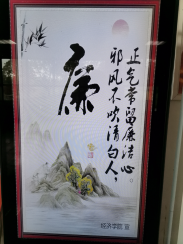 廉
正气常留廉洁心
邪风不吹清白人
经济学院 宣